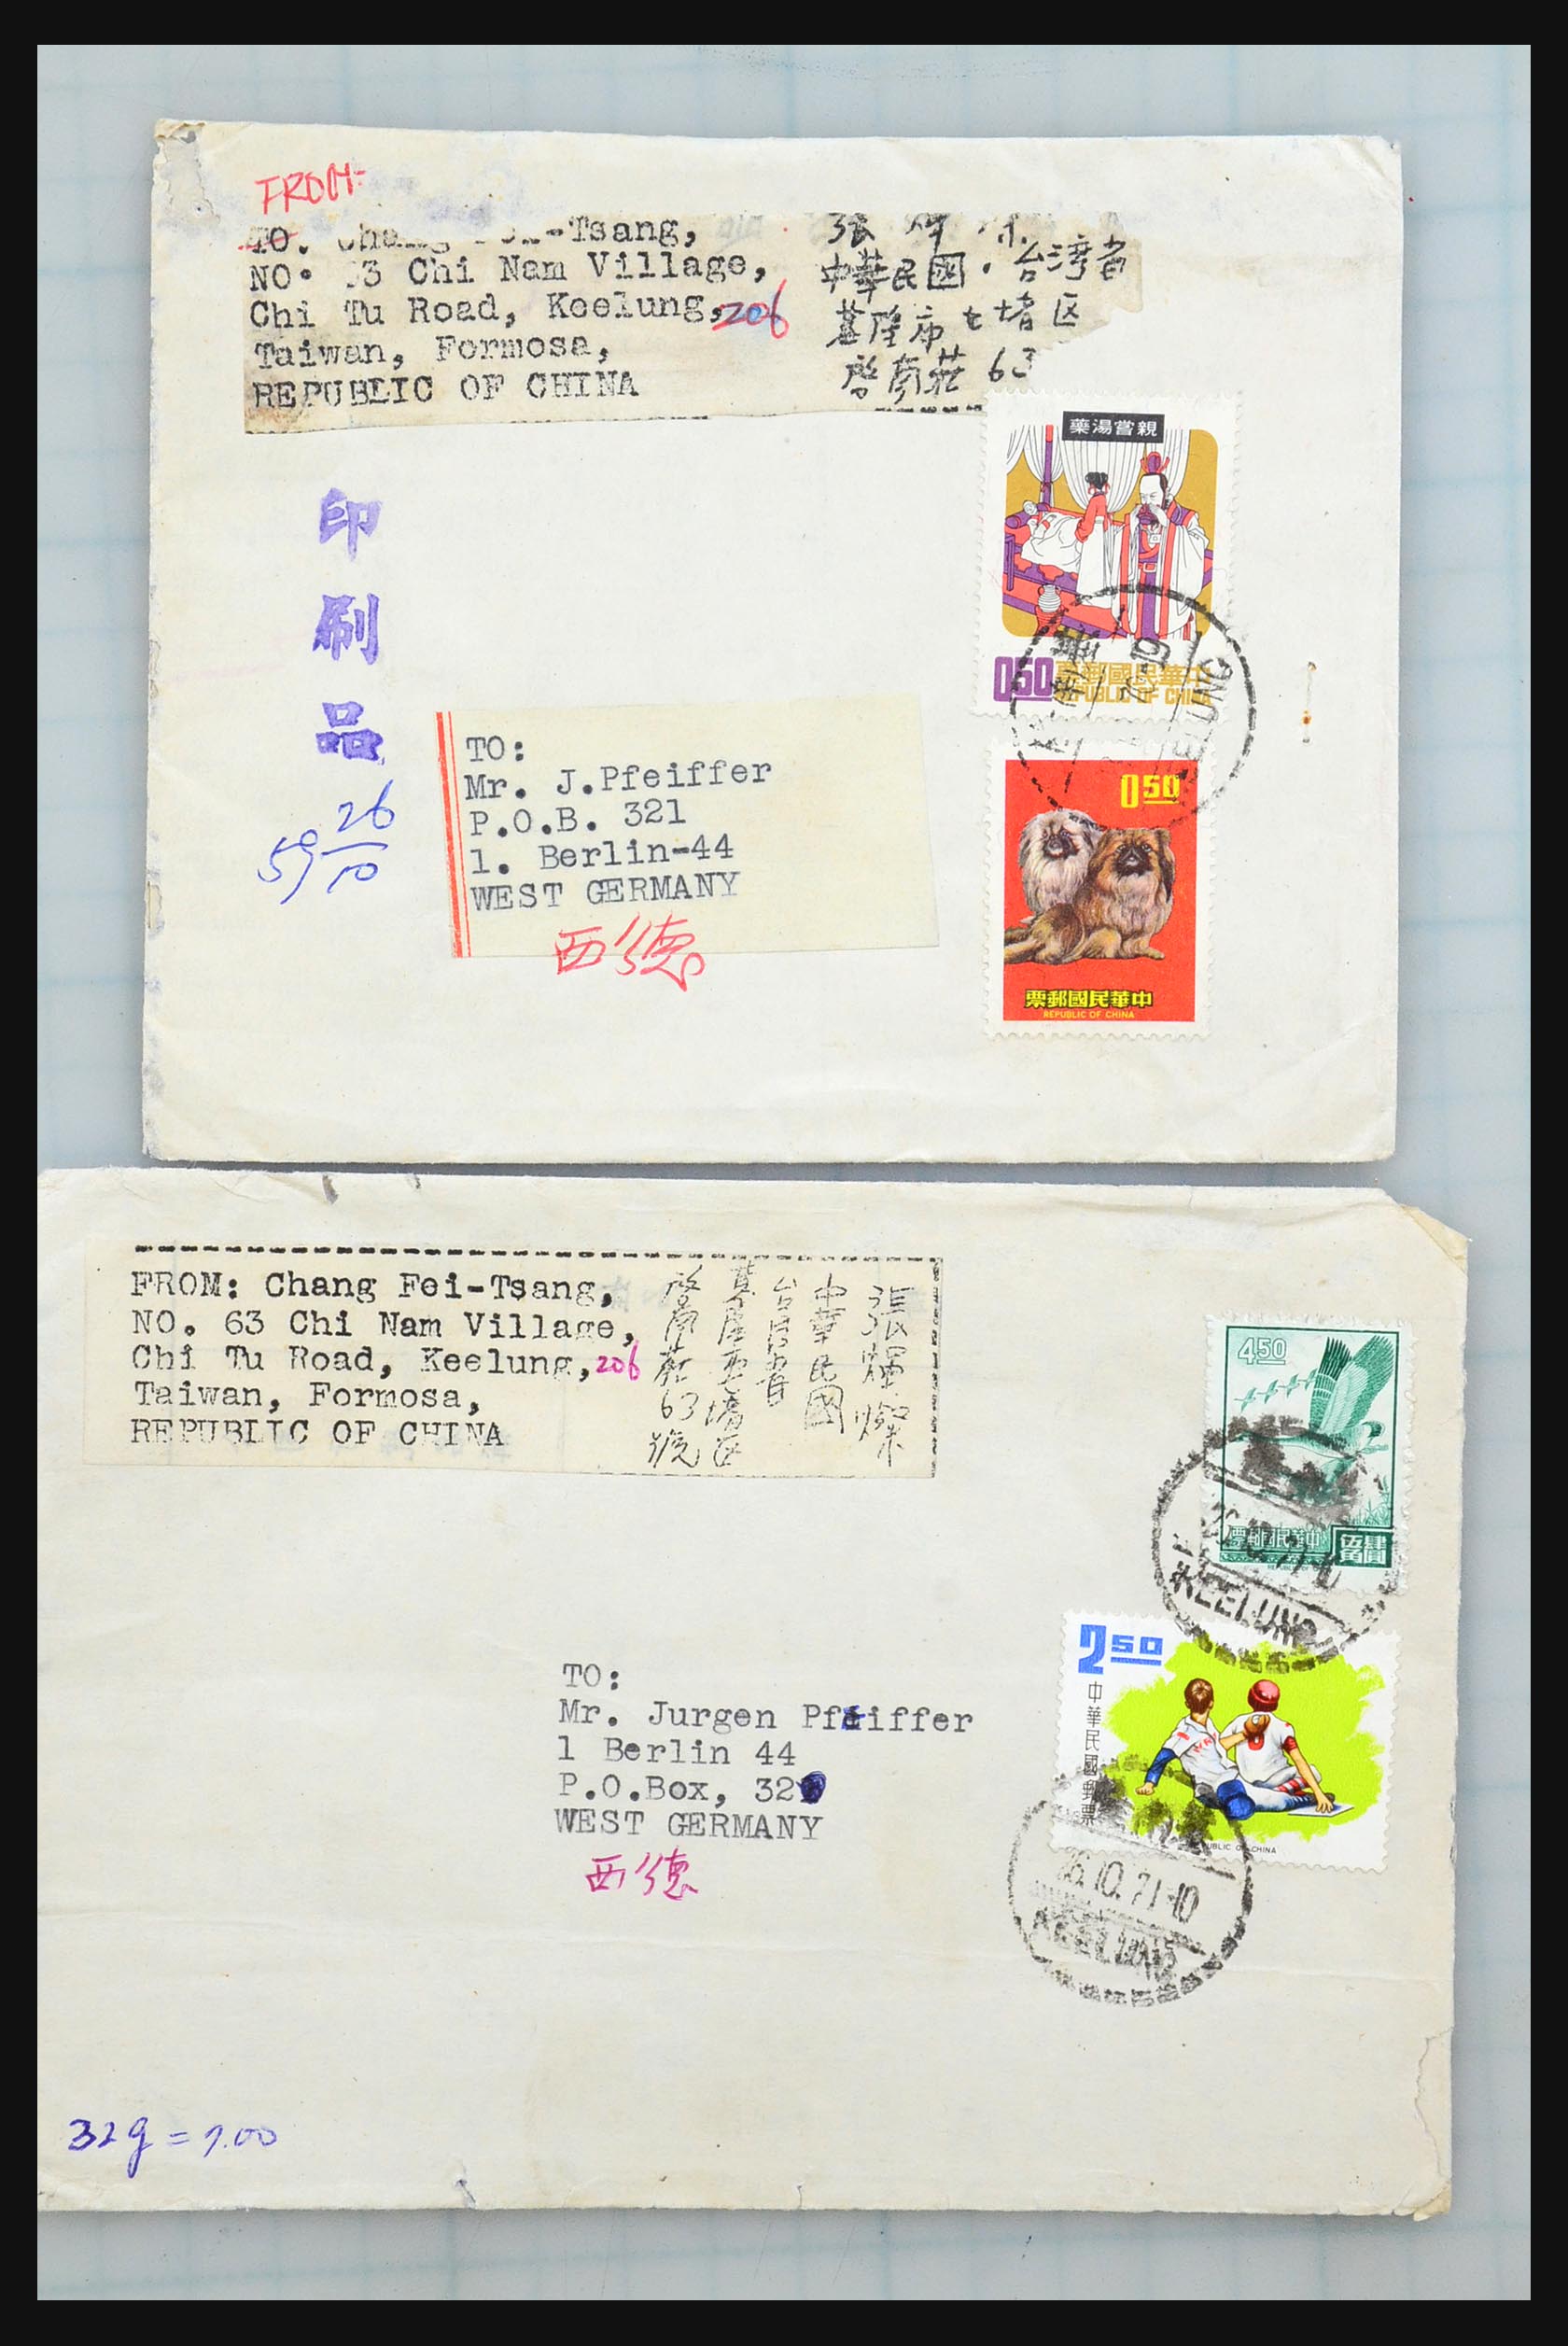 FROM-
TO. Tsang,
NO. 3 Chi Nam Village,
Chi Tu Road, Keelung, 206
Taiwan, Formosa,
REPUBLIC OF CHINA
張
中華民國・台湾省
基隆市七堵区
啓南莊 63
印
刷
品
26
59 10
TO:
Mr. J.Pfeiffer
P.O.B. 321
1. Berlin-44
WEST GERMANY
西德
藥湯嘗親
0.50
票郵國民華中
REPUBLIC OF CHINA
0.50
票郵國民華中
REPUBLIC OF CHINA
FROM: Chang Fei-Tsang,
NO. 63 Chi Nam Village,
Chi Tu Road, Keelung, 206
Taiwan, Formosa,
REPUBLIC OF CHINA
張輝燦
中華民國
台湾省
啓南莊63號
TO:
Mr. Jurgen Pfeiffer
1 Berlin 44
P.O.Box, 32
WEST GERMANY
西德
4.50
票郵國民華中
KEELUNG
2.50
中華民國郵票
REPUBLIC OF CHINA
26.10.71-10
KEELUNG
32g = 7.00